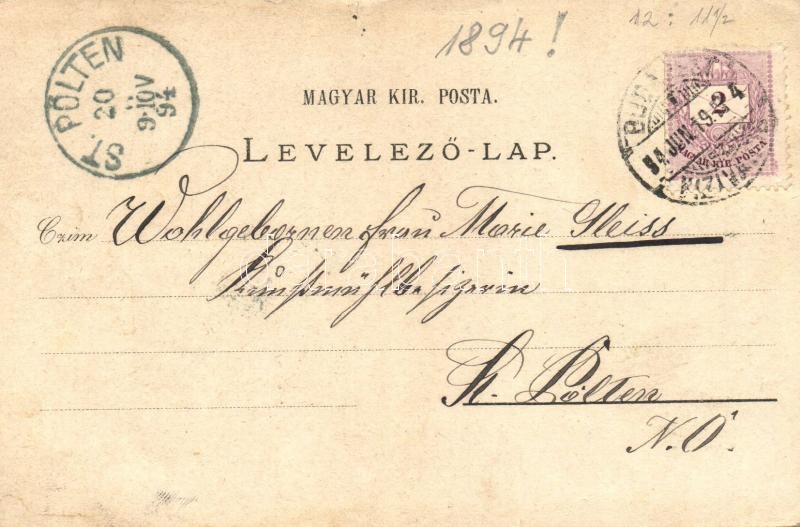 1894!
12 : 11½
ST. PÖLTEN
20
9-10V
94
MAGYAR KIR. POSTA.
LEVELEZŐ-LAP.
2
MAGYAR KIR. POSTA
94 JUN. 19.
Czim Wohlgebornen frau Marie Gleiss
Kunstmühlbesizerin
St. Pölten
N.Ö.